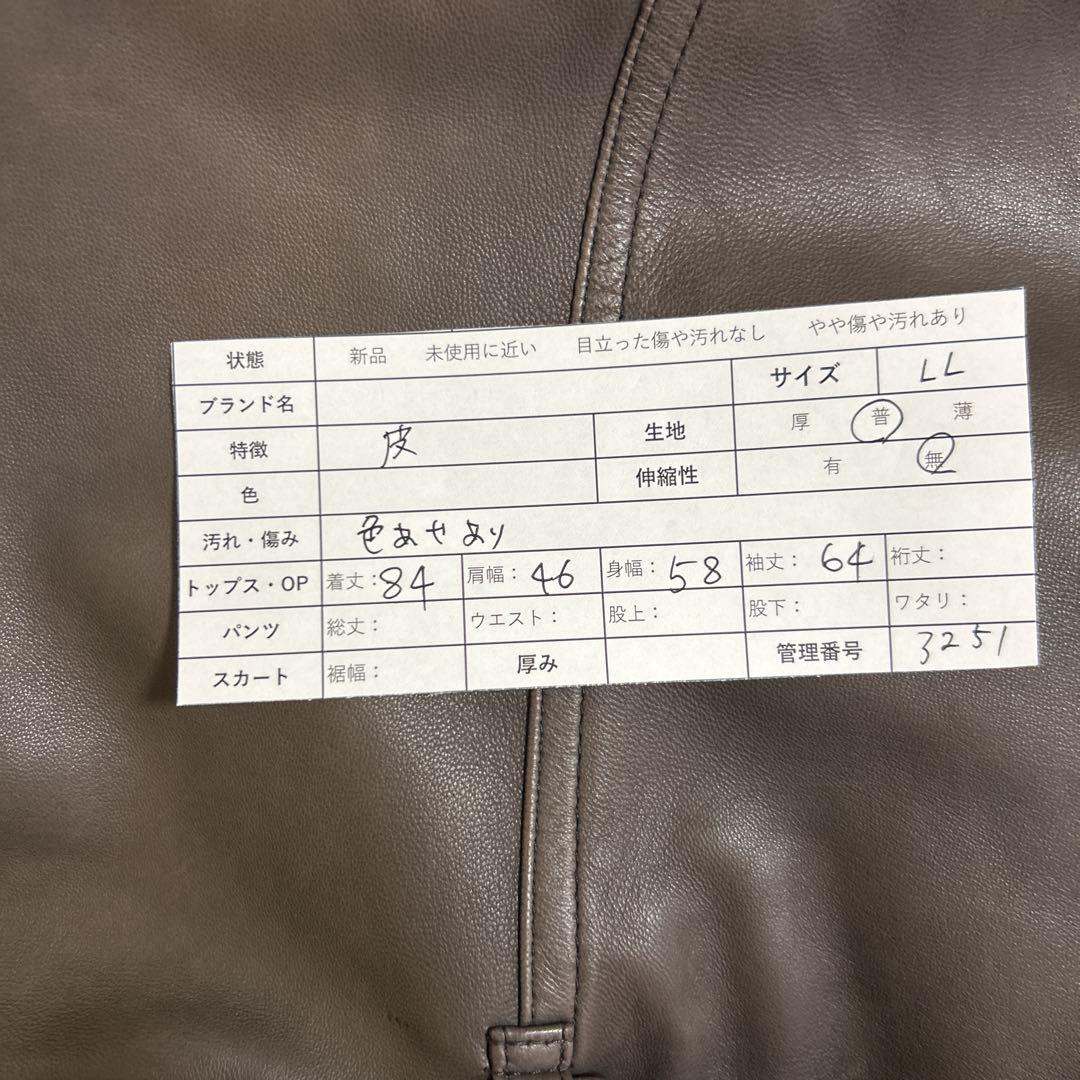 状態 新品 未使用に近い 目立った傷や汚れなし やや傷や汚れあり
ブランド名 サイズ LL
特徴 皮 生地 厚 普 薄
色 伸縮性 有 無
汚れ・傷み 色あせあり
トップス・OP 着丈：84 肩幅：46 身幅：58 袖丈：64 裄丈：
パンツ 総丈： ウエスト： 股上： 股下： ワタリ：
スカート 裾幅： 厚み 管理番号 3251